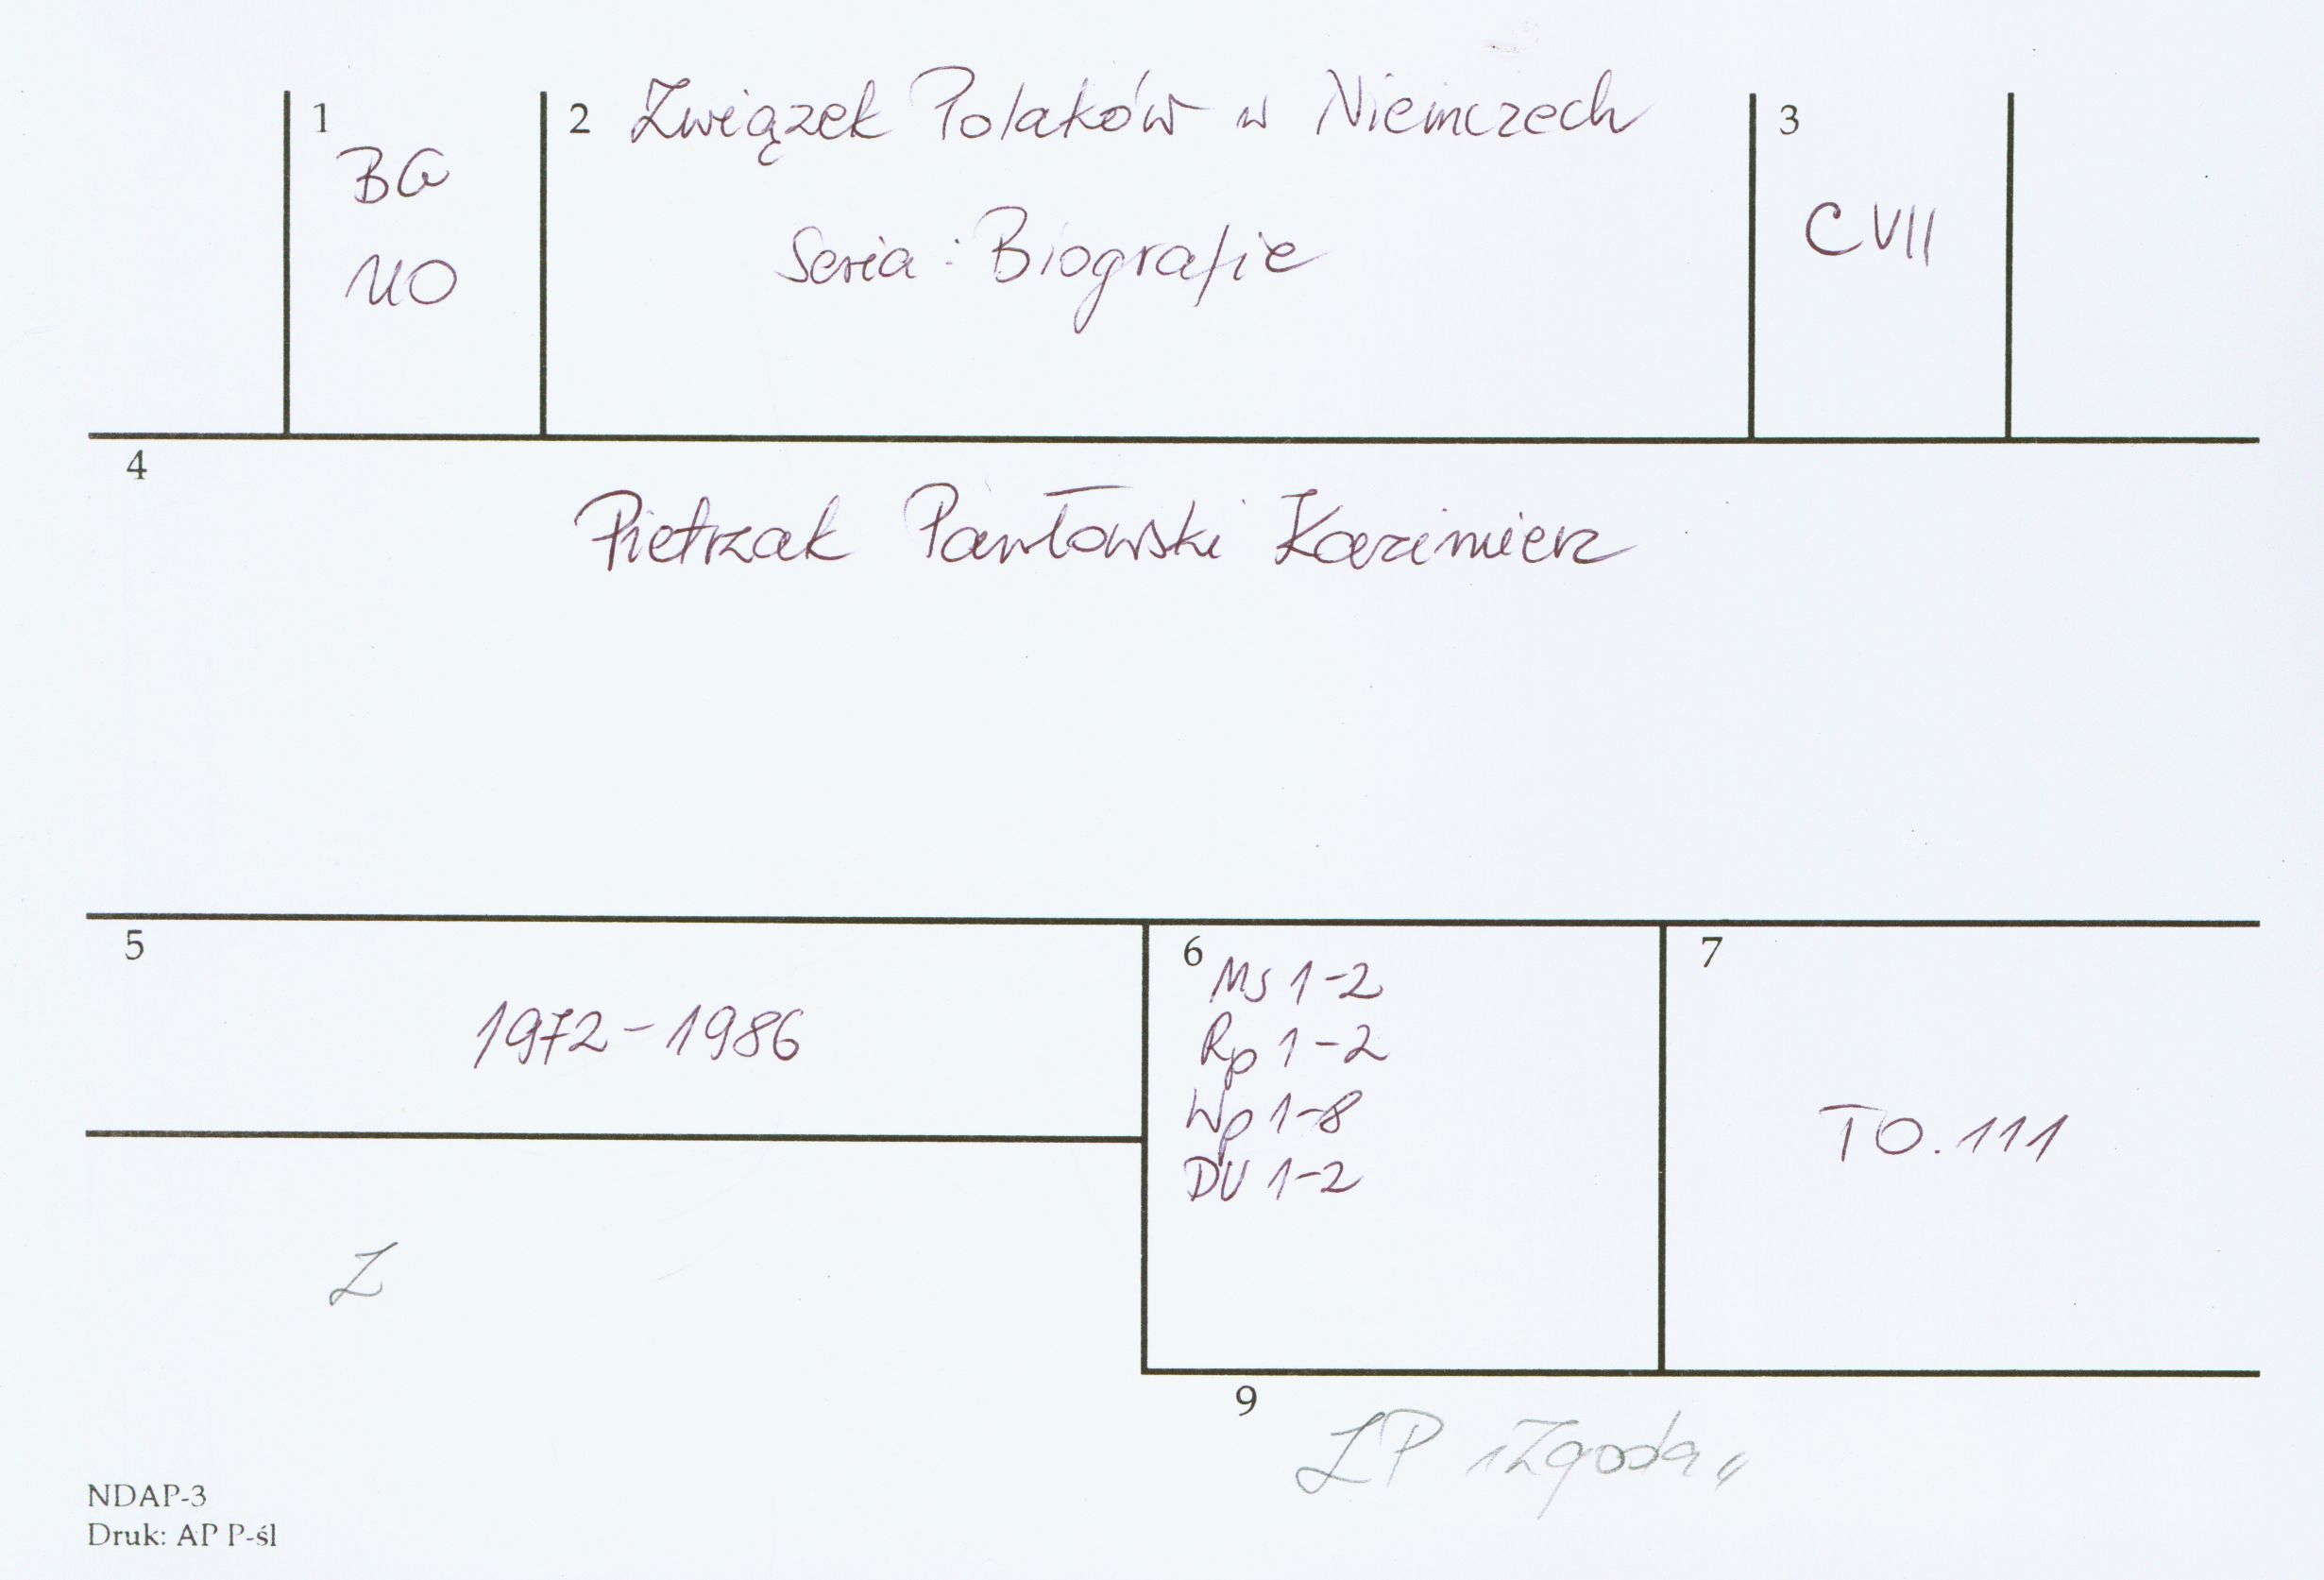 1
BG
UO
2 Związek Polaków w Niemczech
Seria: Biografie
3
C VII
4
Pietrzak Pawłowski Kazimierz
5
1972-1986
6 Ms 1-2
Rp 1-2
Wp 1-8
DU 1-2
7
TO. 111
Z
9
ZP "Zgoda"
NDAP-3
Druk: AP P-śl